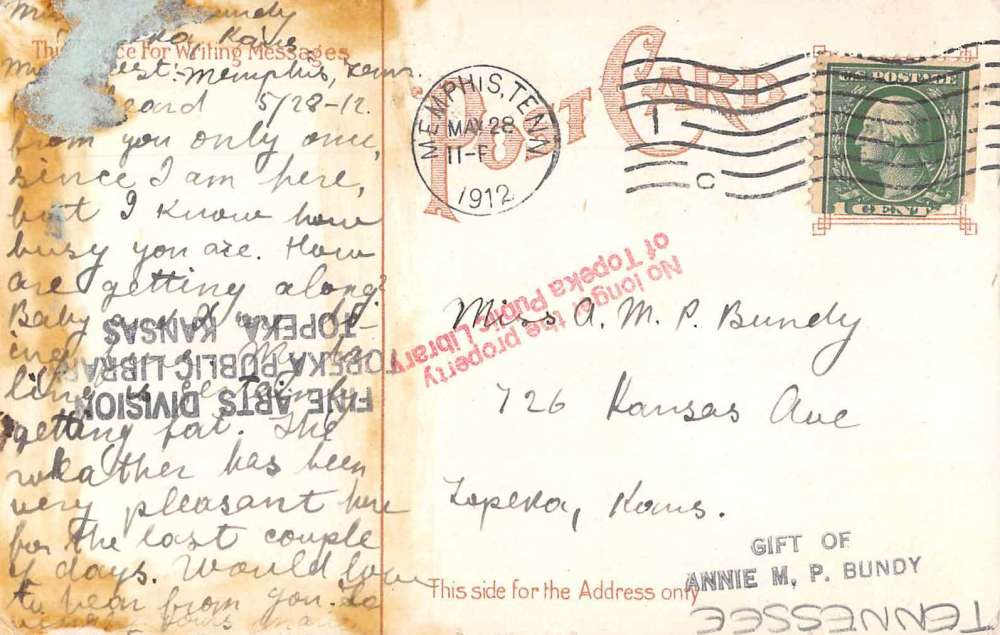 This
For Writing Messages
Bundy
Kans.
Memphis, Tenn.
heard 5/28-12.
from you only once,
since I am here,
but I know how
busy you are. How
are getting along?
Baby
getting fat. The
weather has been
very pleasant here
for the last couple
of days. Would love
to hear from you.
POST CARD
MEMPHIS, TENN.
MAY 28
11-P
1912
1
C
U.S. POSTAGE
1 CENT 1
No longer the property
of Topeka Public Library
Miss A. M. P. Bundy
726 Kansas Ave
Topeka, Kans.
FINE ARTS DIVISION
TOPEKA PUBLIC LIBRARY
TOPEKA, KANSAS
This side for the Address only
GIFT OF
ANNIE M. P. BUNDY
TENNESSEE